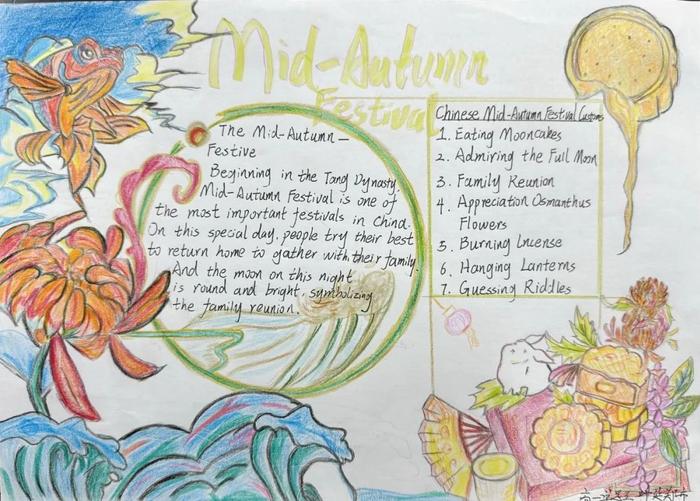 Mid-Autumn
Festival
The Mid-Autumn-
Festive
Beginning in the Tang Dynasty.
Mid-Autumn Festival is one of
the most important festivals in China.
On this special day. people try their best
to return home to gather with their family.
And the moon on this night
is round and bright, symbolizing
the family reunion.
Chinese Mid-Autumn Festival Customs
1. Eating Mooncakes
2. Admiring the Full Moon
3. Family Reunion
4. Appreciation Osmanthus
Flowers
5. Burning Incense
6. Hanging Lanterns
7. Guessing Riddles